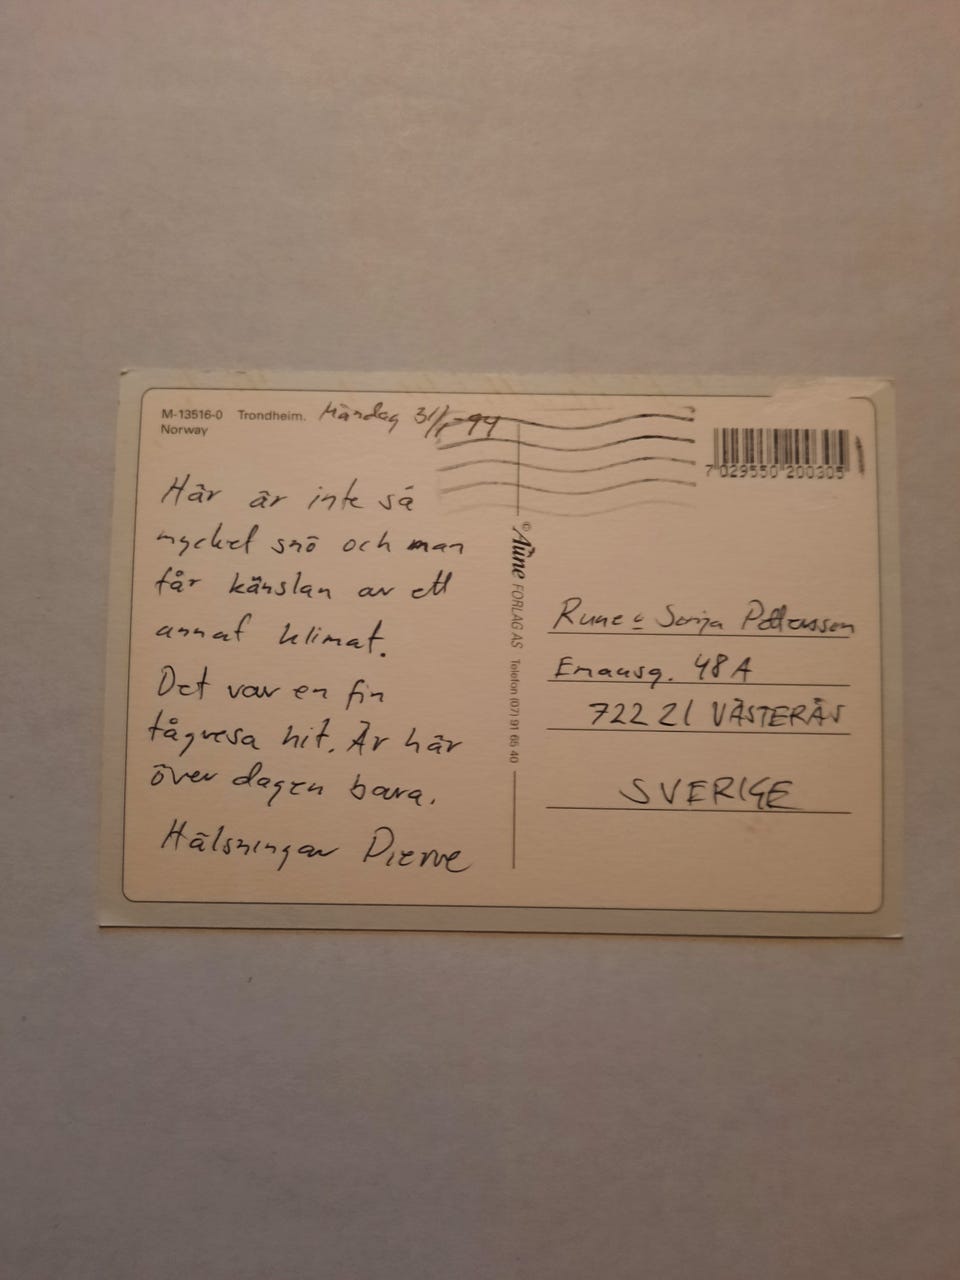 M-13516-0 Trondheim.
Norway
Måndag 31/1-94
Här är inte så
mycket snö och man
får känslan av ett
annat klimat.
Det var en fin
tågresa hit. Är här
över dagen bara.
Hälsningar Pierre
© Aune FORLAG AS Telefon (07) 91 65 40
7 029550 200305
Rune & Sonja Pettersson
Emausg. 48A
722 21 VÄSTERÅS
SVERIGE